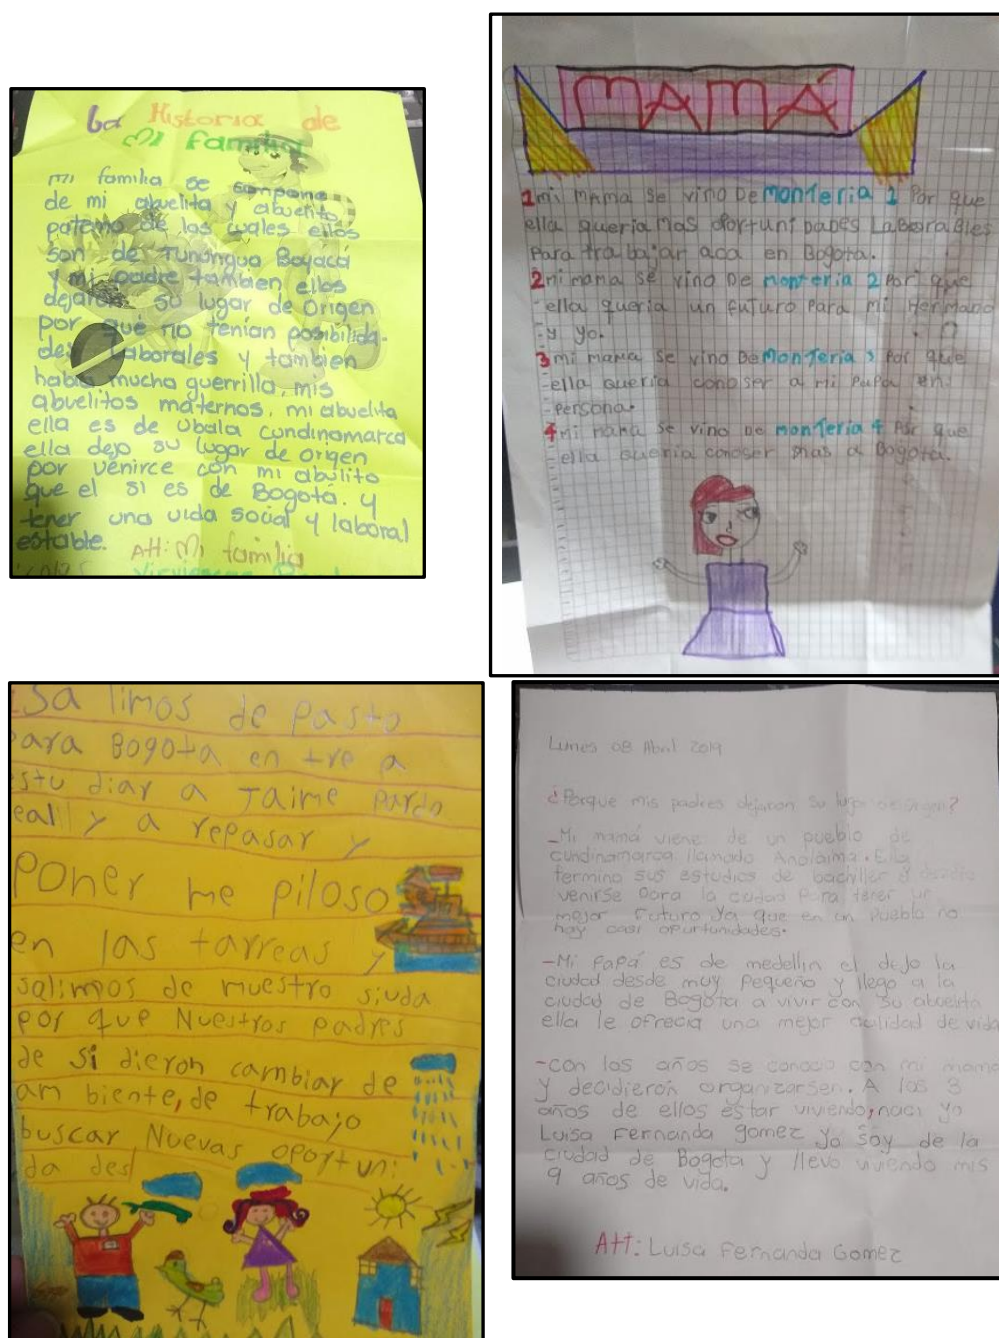 La Historia de
Mi Familia
mi familia se compone
de mi abuelita y abuelito
paterno de los cuales ellos
son de Tunungua Boyacá
y mi padre tambien ellos
dejaron su lugar de Origen
por que no tenian posibilida-
des laborales y tambien
habia mucha guerrilla, mis
abuelitos maternos, mi abuelita
ella es de Ubala Cundinamarca
ella dejo su lugar de origen
por venirce con mi abulito
que el si es de Bogotá. y
tener una vida social y laboral
estable.
Att: Mi familia
MAMÁ
1 mi mama se vino De monteria 1 Por que
ella queria mas oportunidades Laborables
Para trabajar aca en Bogota.
2 mi mama se vino De monteria 2 Por que
ella queria un futuro Para mi Hermano
y yo.
3 mi mama se vino De monteria 3 Por que
ella queria conoser a mi Papa en
Persona.
4 mi mama se vino De monteria 4 Por que
ella queria conoser mas a Bogota.
Sa limos de Pasto
para Bogota en tre a
estu diar a Jaime Pardo
eal y a repasar y
Poner me piloso
en las tarreas y
salimos de nuestro siuda
por que Nuestros padres
de si dieron cambiar de
am biente, de trabajo
buscar Nuevas oportuni
da des
Lunes 08 Abril 2019
¿Porque mis padres dejaron su lugar de origen?
-Mi mamá viene de un pueblo de
cundinamarca llamado Anolaima. Ella
termino sus estudios de bachiller y decidio
venirse para la ciudad Para tener un
mejor futuro ya que en un Pueblo no
hay casi oportunidades.
-Mi Papá es de medellin el dejo la
ciudad desde muy pequeño y llego a la
ciudad de Bogota a vivir con su abuelita
ella le ofrecia una mejor calidad de vida
-con los años se conocio con mi mama
y decidieron organizarsen. A los 3
años de ellos estar viviendo, naci yo
Luisa Fernanda gomez yo soy de la
ciudad de Bogota y llevo viviendo mis
9 años de vida.
Att: Luisa Fernanda Gomez